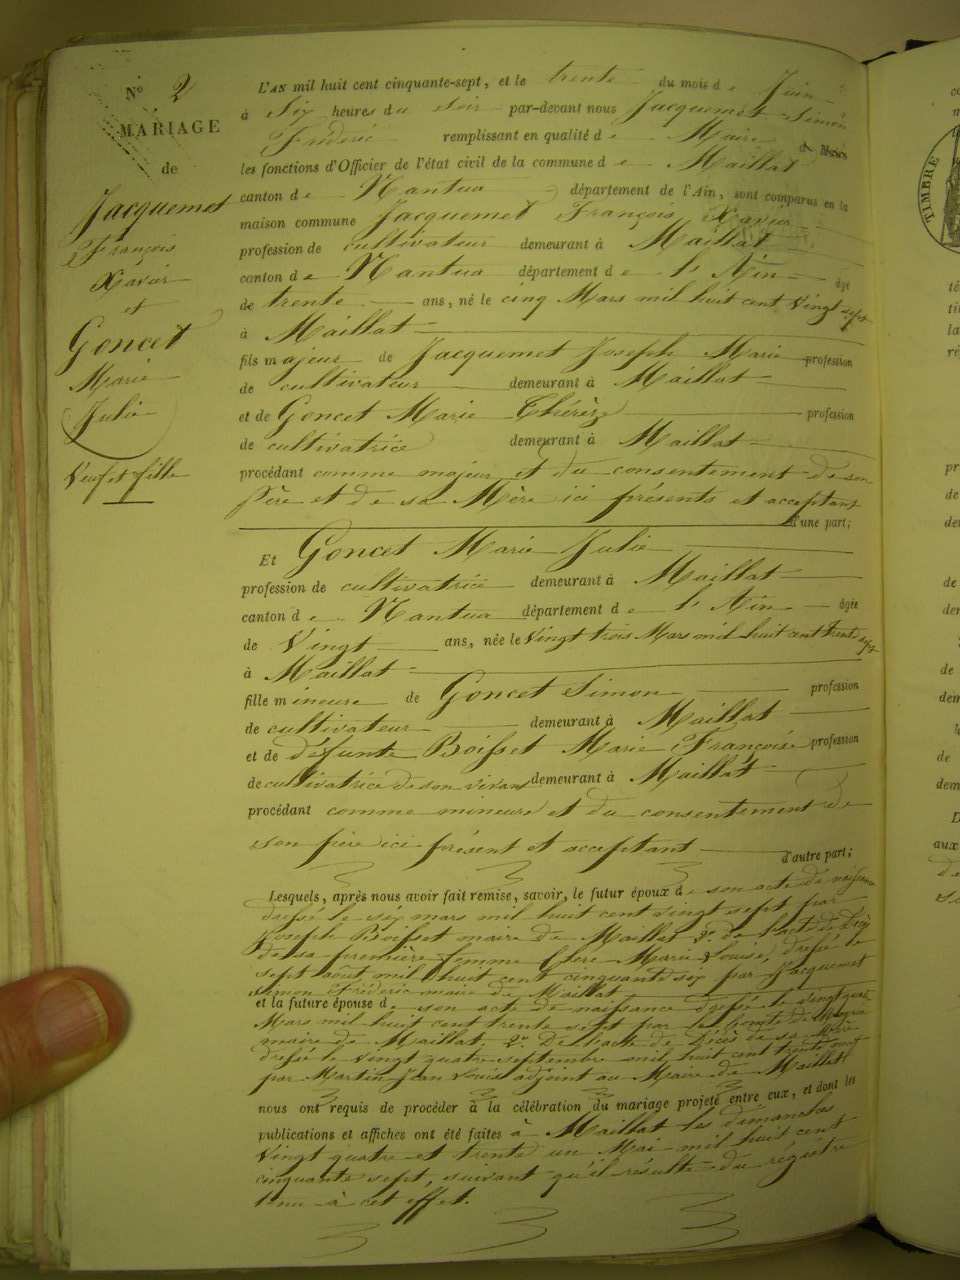 N° 2
MARIAGE
de
Jacquemet
François
Xavier
et
Goncet
Marie
Julie
Veuf et fille
L'AN mil huit cent cinquante-sept, et le trente du mois de Juin
à Six heures du Soir par-devant nous Jacquemet Simon
Fréderic remplissant en qualité de Maire
les fonctions d'Officier de l'état civil de la commune de Maillat
canton de Nantua département de l'Ain, sont comparus en la
maison commune Jacquemet François Xavier
profession de cultivateur demeurant à Maillat
canton de Nantua département de l'Ain âgé
de trente ans, né le cinq Mars mil huit cent vingt sept
à Maillat
fils majeur de Jacquemet Joseph Marie profession
de cultivateur demeurant à Maillat
et de Goncet Marie Thérèze profession
de cultivatrice demeurant à Maillat
procédant comme majeur et du consentement de son
Père et de sa Mère ici présents et acceptant
d'une part;
Et Goncet Marie Julie
profession de cultivatrice demeurant à Maillat
canton de Nantua département de l'Ain âgée
de Vingt ans, née le Vingt trois Mars mil huit cent trente sept
à Maillat
fille mineure de Goncet Simon profession
de cultivateur demeurant à Maillat
et de défunte Boisset Marie Françoise profession
de cultivatrice de son vivant demeurant à Maillat
procédant comme mineure et du consentement de
son père ici présent et acceptant d'autre part;
Lesquels, après nous avoir fait remise, savoir, le futur époux de son acte de naissance
dressé le six mars mil huit cent vingt sept par
Joseph Boisset maire de Maillat 2° de l'acte de Décès
de sa première femme Marie Louise, dressé le
sept août mil huit cent cinquante six par Jacquemet
Simon Fréderic maire de Maillat
et la future épouse de son acte de naissance dressé le vingt quatre
Mars mil huit cent trente sept par
maire de Maillat, 2° De l'acte de Décès de sa Mère
dressé le vingt quatre septembre mil huit cent trente neuf
par Martin Jean Louis adjoint au Maire de Maillat
nous ont requis de procéder à la célébration du mariage projeté entre eux, et dont les
publications et affiches ont été faites à Maillat les dimanches
vingt quatre et trente un Mai mil huit cent
cinquante sept, suivant qu'il résulte du régistre
tenu à cet effet.
TIMBRE